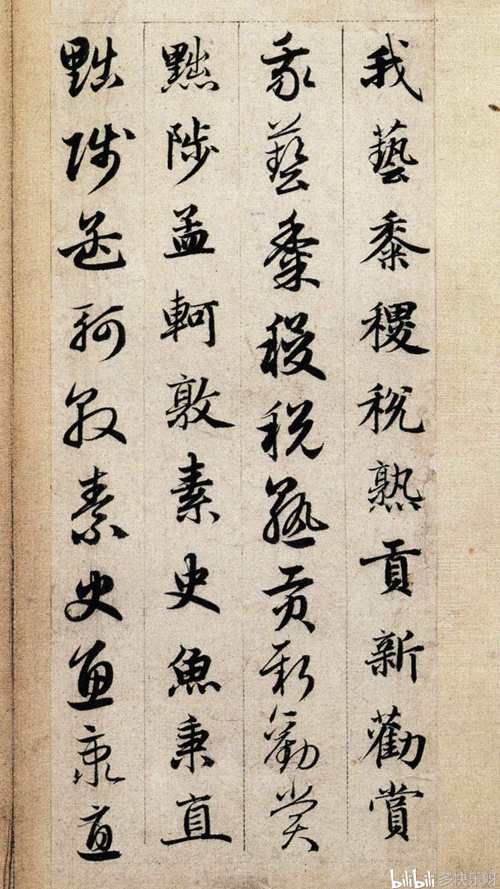 我藝黍稷稅熟貢新勸賞
我藝黍稷稅熟貢新勸賞
黜陟孟軻敦素史魚秉直
黜陟孟軻敦素史魚秉直
bilibili 多快乐呀